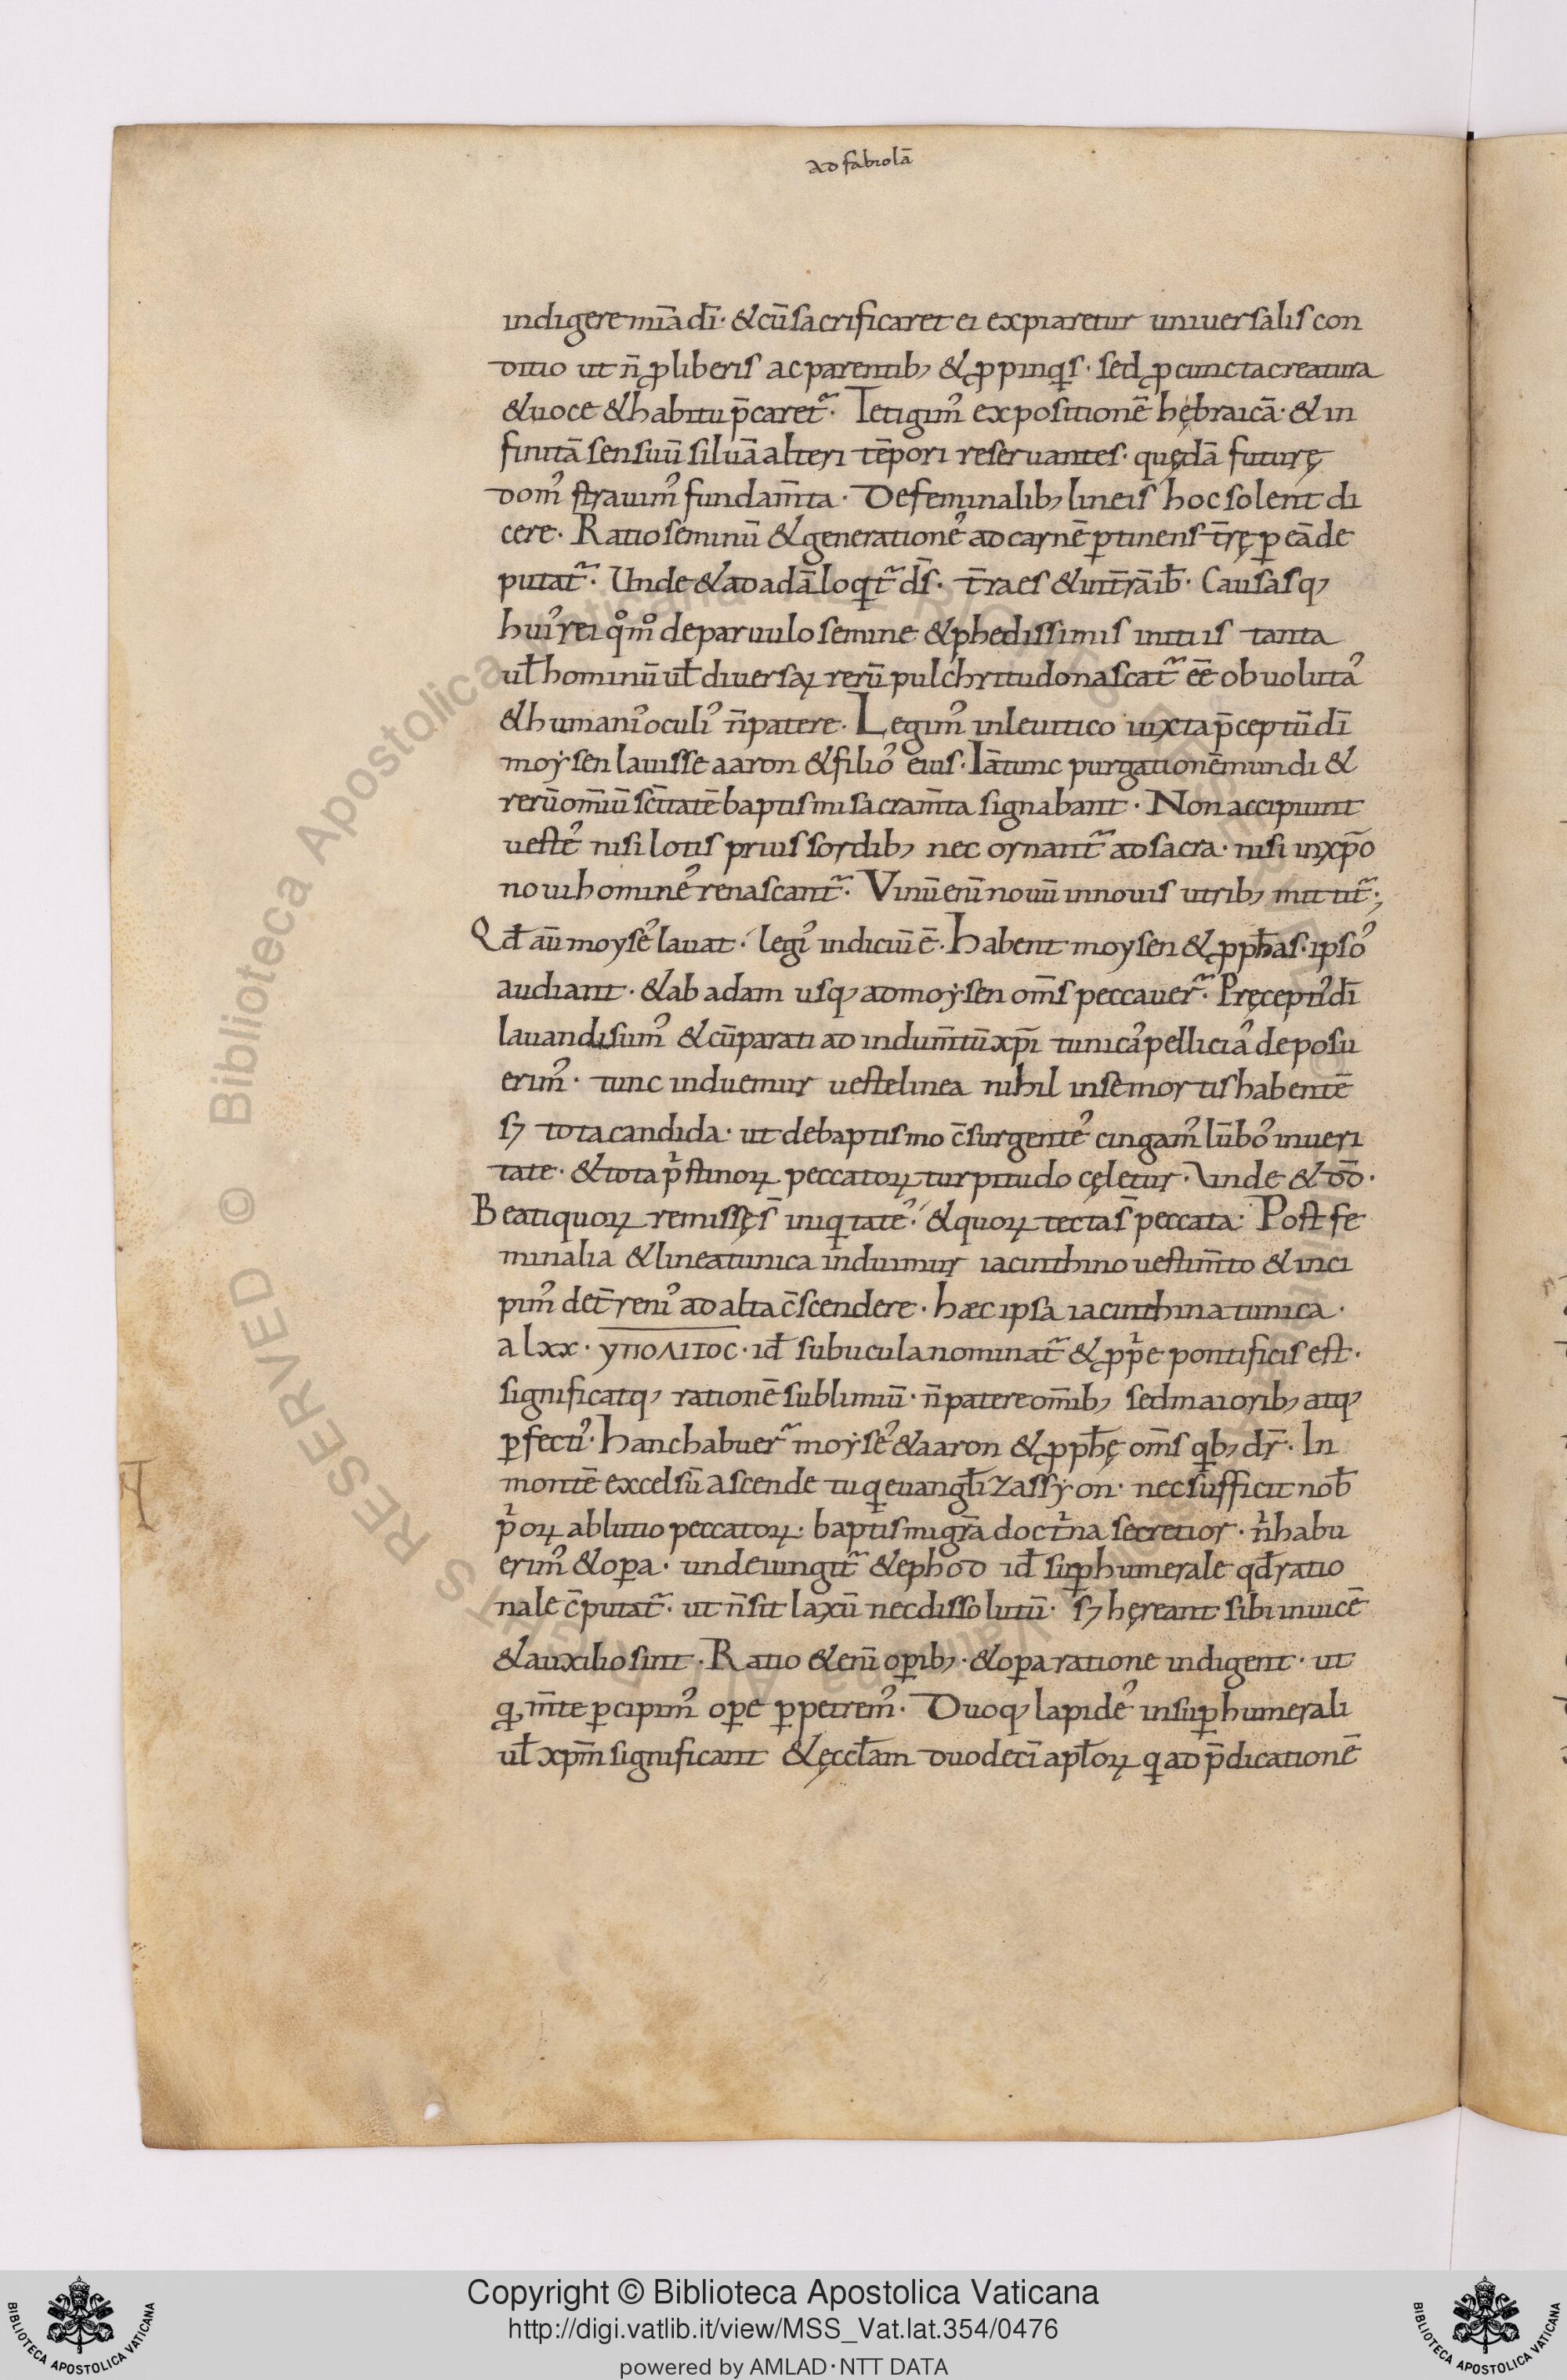 ad fabiolā
indigere mīa dī· & cū sacrificaret ei expiaretur uniuersalis con
ditio ut n̄ ꝓ liberis ac parentib; & ꝓpinqꝫs· sed ꝓ cuncta creatura
& uoce & habitu p̄caret᷑· Tetigim᾽ expositionē hębraicā· & in
finitā sensuū siluā alteri tēpori reseruantes· quędā futurę
dom᾽ strauim᾽ fundam̄ta· De feminalib; lineis hoc solent di
cere· Ratio seminū & generatione᾽ ad carnē ꝑtinens t̄rę ꝑ eā de
putat᷑· Unde & ad adā loqꞇ᷑ ds̄· t̄ra es & in t̄rā ib̄· Causasq;
hui᾽ rei qͦm̊ de paruulo semine & phedissimis initiis tanta
ul̄ hominū ul̄ diuersaꝝ rerū pulchritudo nascat᷑ ēe obuoluta᾽
& humani᾽ oculi᾽ n̄ patere· Legim᾽ in leuitico iuxta p̄ceptū dī
moysen lauisse aaron & filio᾽ eius· Iā tunc purgationē mundi &
rerū om̄iū sc̄itatē baptismi sacram̄ta signabant· Non accipiunt
ueste᾽ nisi lotis prius sordib; nec ornant᷑ ad sacra· nisi in xp̄o
noui homine᾽ renascant᷑· Vinū enī nouū in nouis utrib; mittit᷑;
Qd̄ aū moyse᾽ lauat· legi᾽ indiciū ē· habent moysen & ꝓph̄as· ipso᾽
audiant· & ab adam usq; ad moysen om̄s peccauer᷑· Pręcepti᾽ dī
lauandi sum᾽ & cū parati ad indum̄tū xp̄i tunica᾽ pellicia᾽ deposu
erim᾽· tunc induemur ueste linea nihil in se mortis habentē
sꝫ tota candida· ut de baptismo c̄surgente᾽ cingam᾽ lūbo᾽ in ueri
tate· & tota pͥstinoꝝ peccatoꝝ turpitudo cęletur· Vnde & dd̄·
Beati quoꝝ remissę s̄ iniqꞇate᾽· & quoꝝ tecta s̄ peccata· Post fe
minalia & linea tunica induimur iacinthino uestim̄to & inci
pim᾽ de t̄reni᾽ ad alta c̄scendere· hæc ipsa iacinthina tunica·
a lxx· ΥΠΟΛΙΤΟC· id̄ subucula nominat᷑ & ꝓpͥe pontificis est·
significatq; rationē sublimiū· n̄ patere om̄ib; sed maiorib; atq;
ꝑfecti᾽· hanc habuer᷑ moyse᾽ & aaron & ꝓph̄ę om̄s qb; dr̄· In
montē excelsū ascende tu q euangl̄izas syon· nec sufficit nob̄
pͥoꝝ ablutio peccatoꝝ· baptismi gr̄a doctͥna secretior· nͥ habu
erim᾽ & oꝑa· unde iungit᷑ & ephod id̄ suꝑhumerale qd̄ ratio
nale c̄putat᷑· ut n̄ sit laxū nec dissolutū· sꝫ hęreant sibi inuicē
& auxilio sint· Ratio & enī oꝑib;· & oꝑa ratione indigent· ut
q m̄te ꝑcipim᾽ oꝑe ꝑpetrem᾽· Duoq; lapide᾽ in suꝑhumerali
ul̄ xp̄m significant & ęccl̄am duodecī apl̄oꝝ q ad p̄dicationē